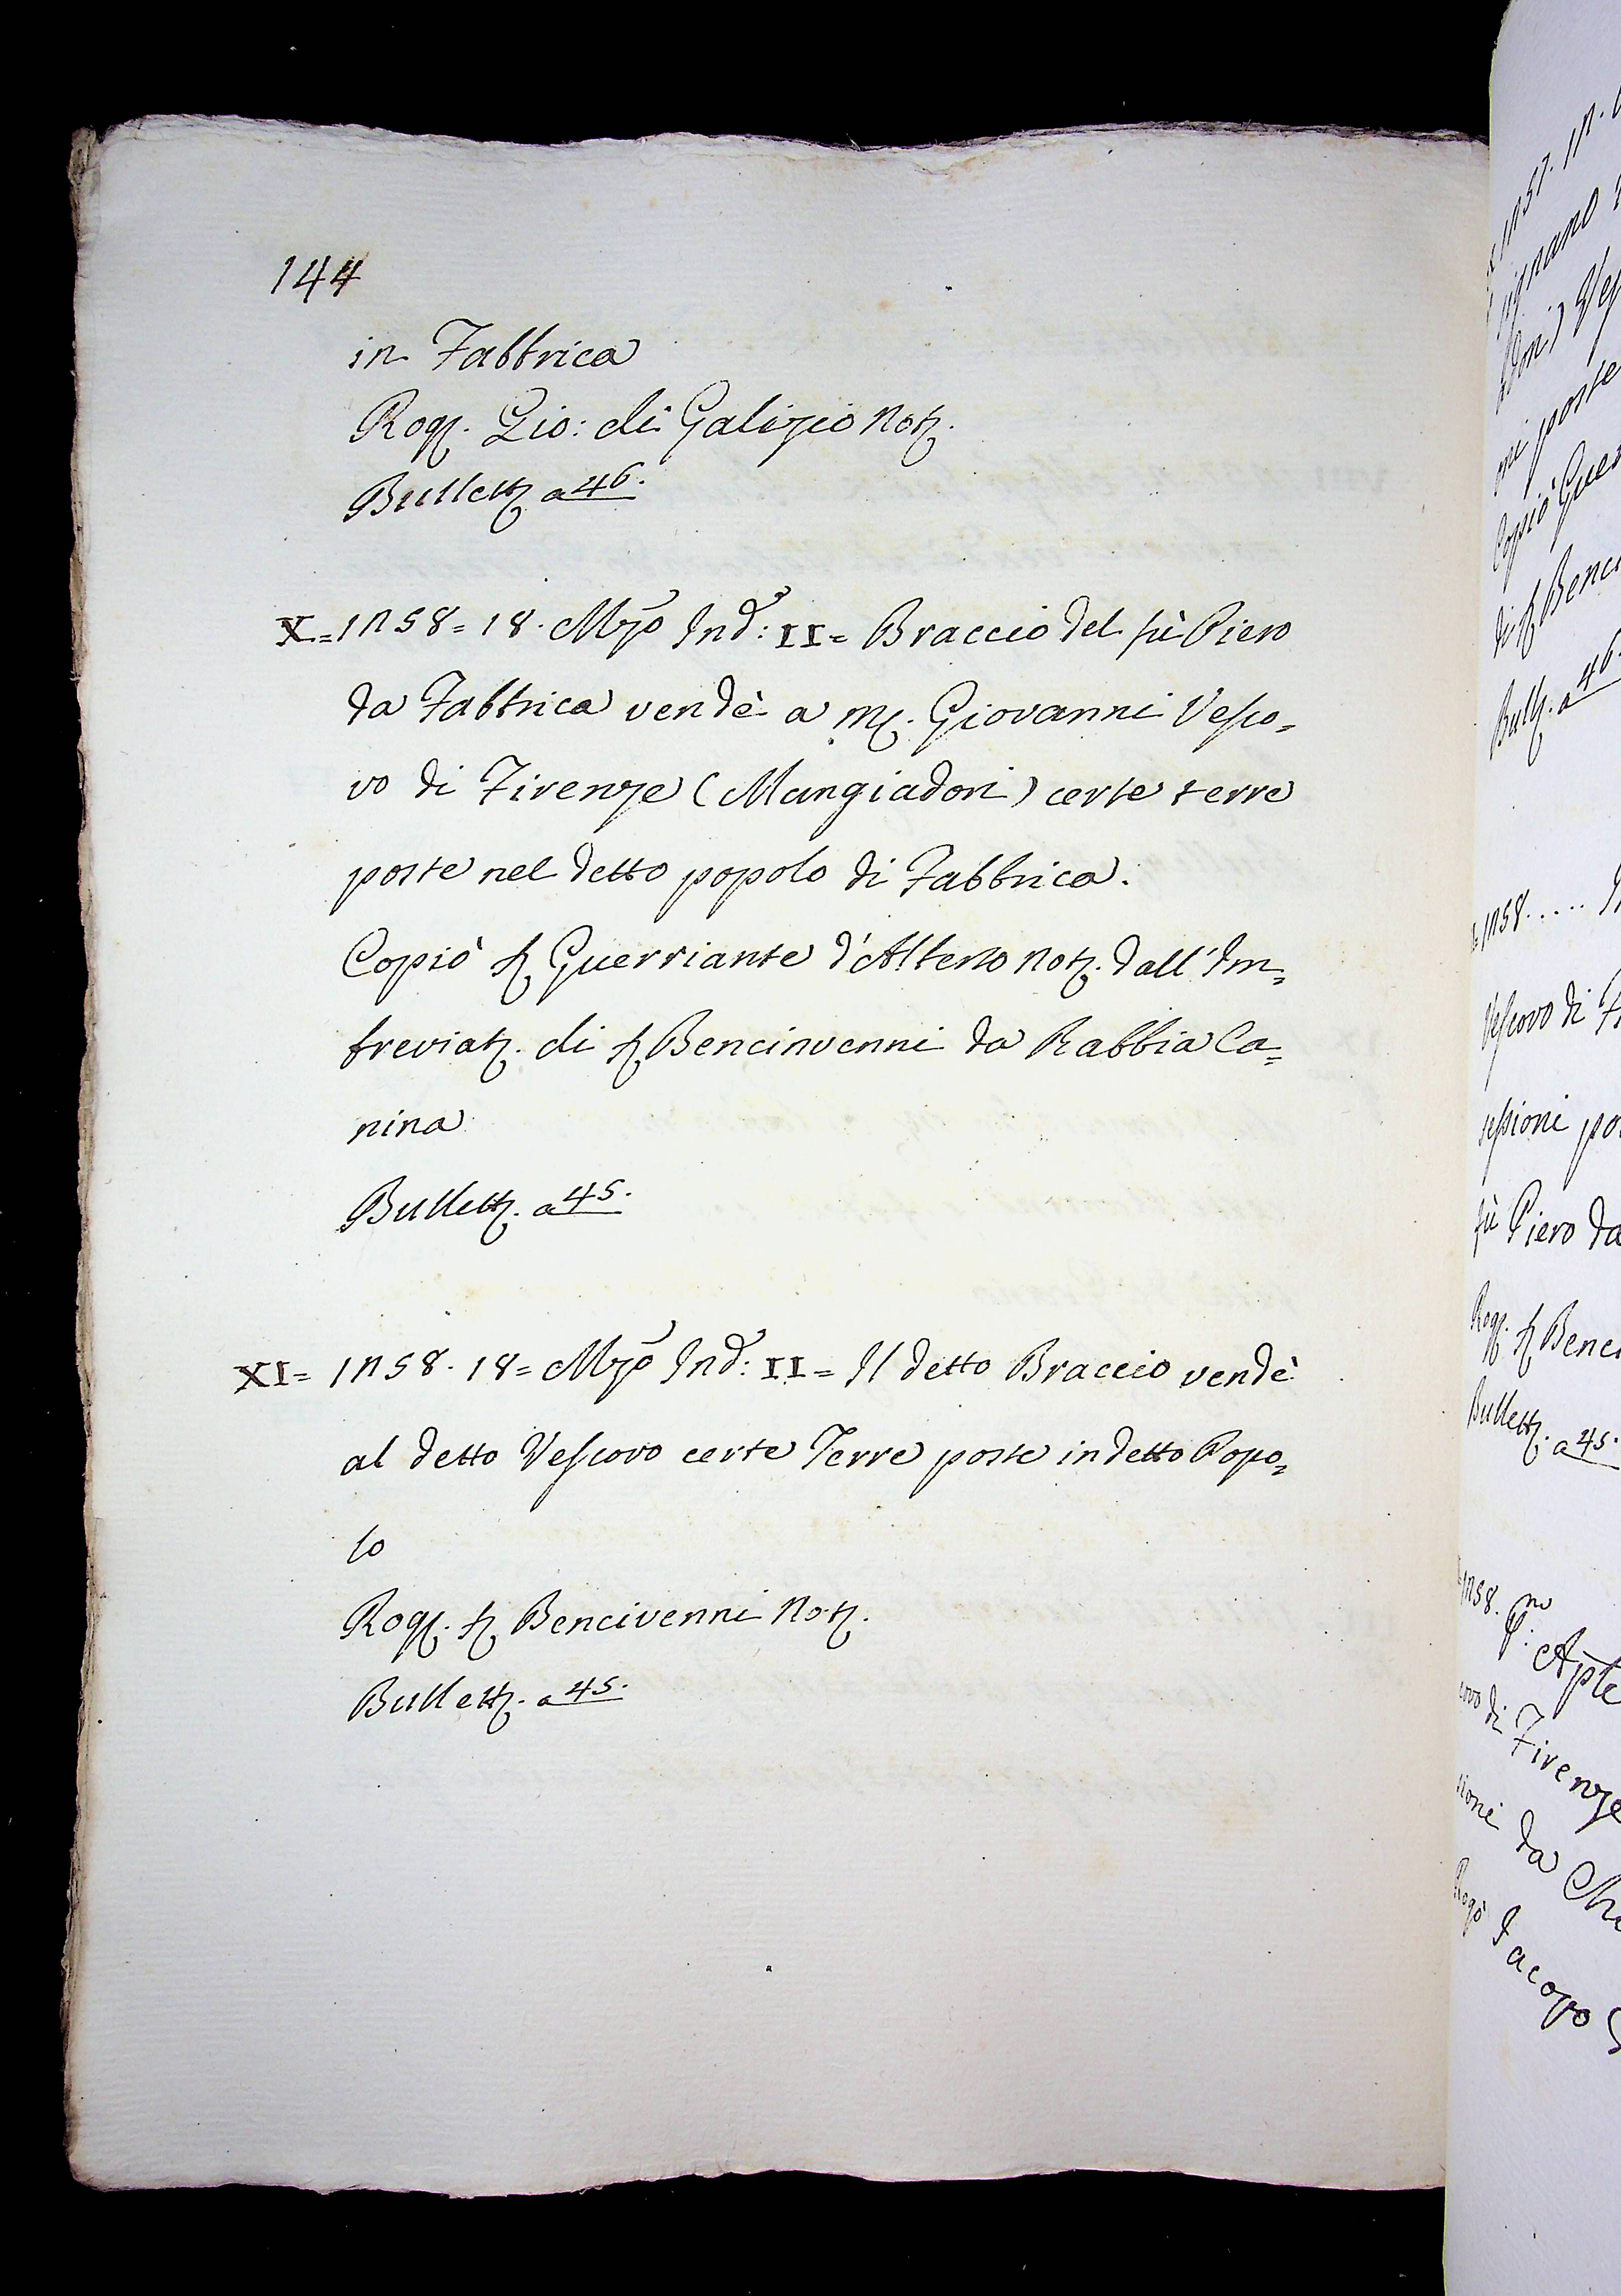 144
in Fabbrica
Rog. Gio: di Galizio Not.
Bullett. a 46.
X.= 1258= 18. Mzo Ind: II= Braccio del fù Piero
da Fabbrica vendè a M. Giovanni Vesco=
vo di Firenze (Mangiadori) certe terre
poste nel detto popolo di Fabbrica.
Copiò S. Guerriante d'Alberto Not. dall'Im=
breviat. di S. Bencinvenni da Rabbia Ca=
nina
Bullett. a 45.
XI= 1258. 18= Mzo Ind: II= Il detto Braccio vendè
al detto Vescovo certe Terre poste in detto Popo=
lo
Rog. S. Bencivenni Not.
Bullett. a 45.
1257.
poste
Copiò
di S.
Bull. a 46.
1258.....
Vescovo di
sessioni
fù Piero da
Rog. S.
Bullett. a 45.
1258.
di Firenze
da
Rogò Jacopo